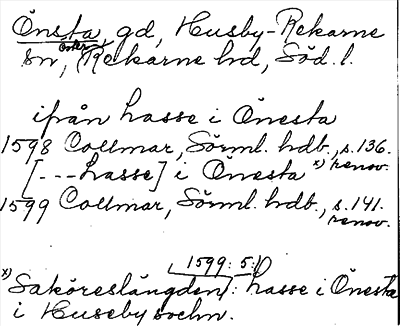 Önsta, gd, Husby-Rekarne
sn, Öster Rekarne hd, Söd. l.
ifrån hasse i Önesta
1598 Collmar, Sörml. hdb., s. 136.
[---hasse] i Önesta x) renov.
1599 Collmar, Sörml. hdb., s. 141.
renov.
1599: 5:1)
x) Saköreslängden: hasse i Önesta
i Huseby sochn.